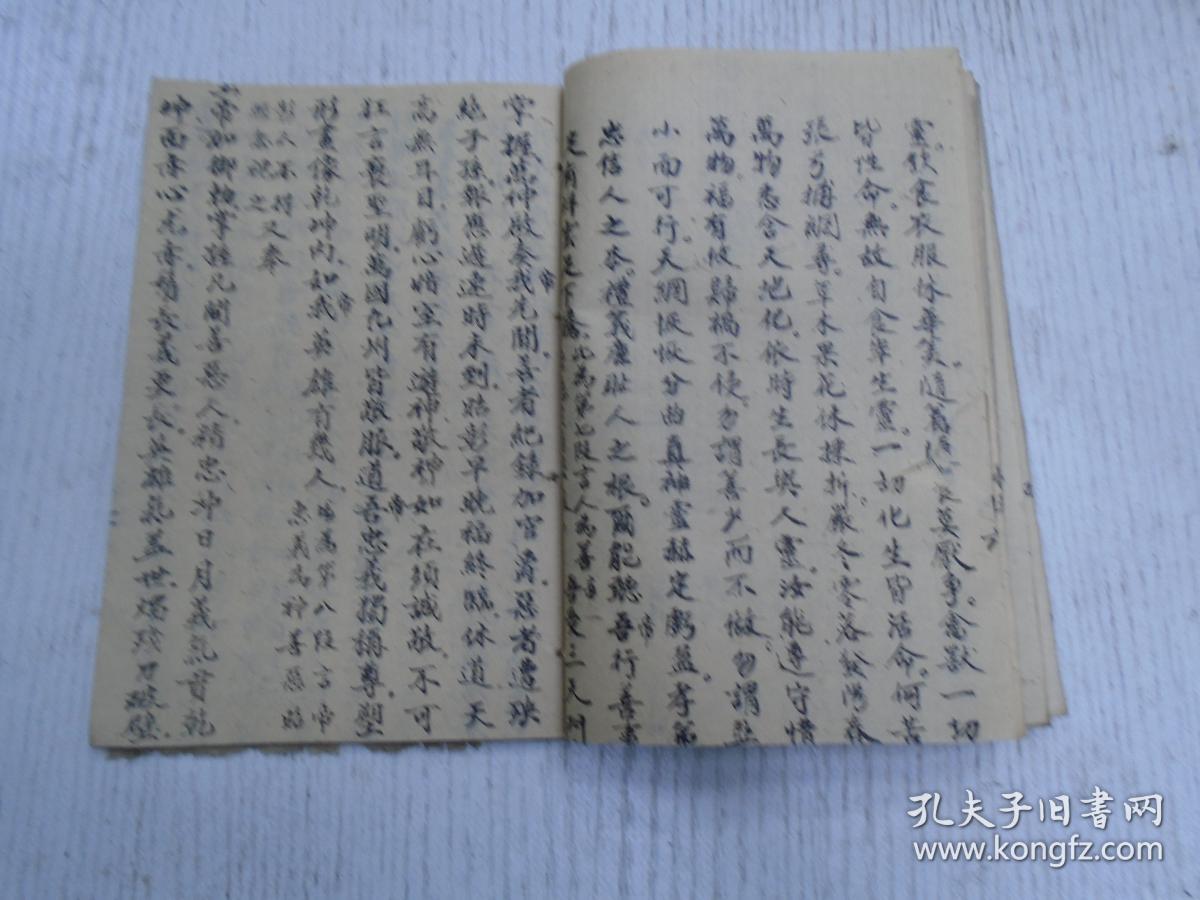 靈飲食衣服休華美隨着 莫厭爭禽獸一切
皆性命無故自食牽生靈一切化生皆活命何苦
張弓捕網尋草木果花休揀折嚴冬零落發陽春
萬物悉含天地化依時生長與人靈汝能遵守惜
萬物福有攸歸禍不侵勿謂善少而不做勿謂惡
小而可行天網恢恢分曲直神靈赫赫定虧盈孝弟
忠信人之本禮義廉恥人之根爾能聽吾帝行善事
足 祥雲足下 此為第七段言人為善 三天門
掌握萬神啟奏我帝先聞善者紀錄加官爵惡者遭殃
絕子孫報應遲速時未到昭彰早晚福終臨休道天
高無耳目虧心暗室有遊神敬神如在須誠敬不可
狂言褻聖明萬國九州皆敬服道吾帝忠義獨稱尊塑
形畫像乾坤內如我帝英雄有幾人 為第八段言帝
忠義為神善惡昭
彰人不得 又奉
帝加 掌 凡間善惡人精忠沖日月義氣貫乾
坤面赤心尤赤鬚長義更長英雄氣蓋世 刀
孔夫子旧書网
www.kongfz.com